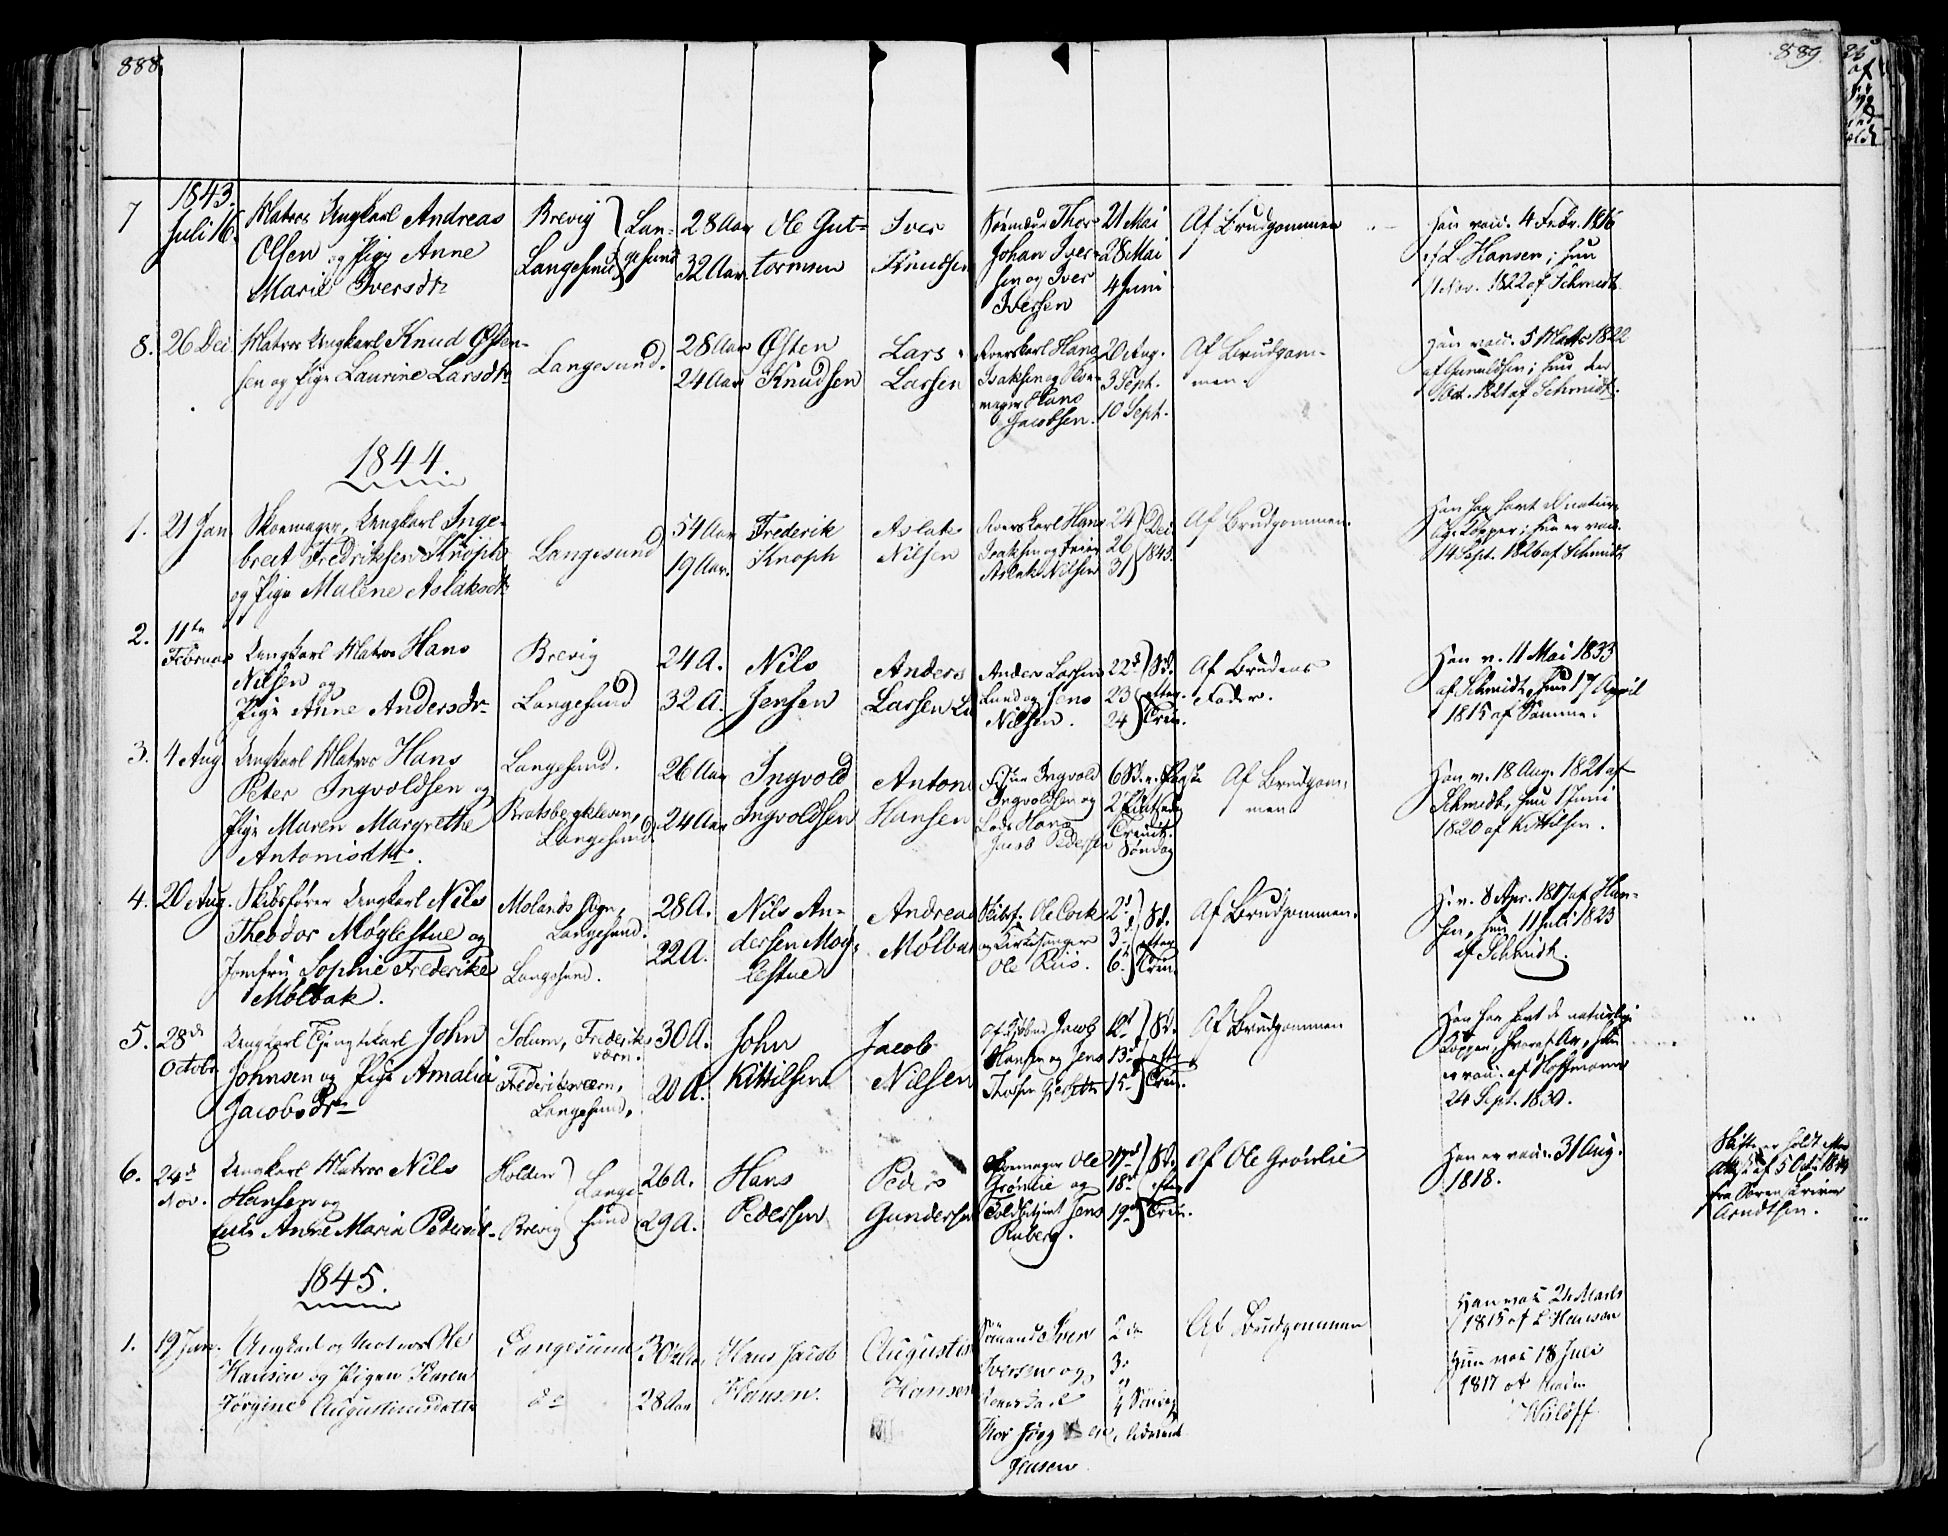 888
889.
1843.
7
Juli 16.
Matros Ungkarl Andreas
Olsen og Pige Anne
Marie Iversdtr
Brevig
Langesund
Lan-
gesund
28 Aar
32 Aar
Ole Gut-
tormsen
Iver
Knudsen
Thor
Johan Iver-
sen og Iver
Iversen
21 Mai
28 Mai
4 Juni
Af Brudgommen
Han vac. 4 Febr. 1816
af L. Hansen; hun
Nov. 1822 af Schmidt
8.
26 Dec
Matros Ungkarl Knud Østen-
sen og Pige Laurine Larsdtr
Langesund.
28 Aar
24 Aar
Østen
Knudsen
Lars
Larsen
Hans
Isaksen og Skoe-
mager Hans
Jacobsen.
20 Aug.
3 Sept.
10 Sept.
Af Brudgom-
men.
Han vac. 5 Marts 1822
af Gunuldsen; hun den
Oct. 1821 af Schmidt.
1844.
1.
21 Jan
Skoemager, Ungkarl Inge-
bret Fredriksen Knoph
og Pige Malene Aslaksdtr
Langesund
54 Aar
19 Aar.
Frederik
Knoph
Aslak
Nilsen
Hans
Isaksen og
Aslak Nilsen
24
26
31
Dec
1843.
Af Brudgommen.
Han har havt de natur-
lige Kopper; hun er vac.
14 Sept. 1826 af Schmidt
2.
11te
Februar
Ungkarl Matros Hans
Nilsen og
Pige Anne Andersdr
Brevig
Langesund
24 A.
32 A.
Nils
Jensen
Anders
Larsen
Anders Larsen
Lund og Jens
Nilsen.
22d
23
24
Sd.
efter
Trin.
Af Brudens
Fader.
Han v. 11 Mai 1833
af Schmidt, hun 17 April
1815 af Samme.
3.
4 Aug
Ungkarl Matros Hans
Peter Ingvoldsen og
Pige Maren Margrethe
Antonisdtr.
Langesund.
Bratsbergkleven,
Langesund.
26 Aar
24 Aar
Ingvold
Ingvoldsen
Anton
Hansen
Ingvold
Ingvoldsen og
Lods Hans
Jacob Pedersen
6 Sd. e. Paaske
2 Pintsed.
Trinit.
Søndag
Af Brudgom-
men
Han v. 18 Aug. 1821 af
Schmidt, hun 1 Juni
1820 af Kittilsen.
4.
20 Aug.
Skibsfører Ungkarl Nils
Theodor Møglestue og
Jomfru Sophie Frederike
Mølbak.
Molands Sogn,
Langesund.
Langesund.
28 A.
22 A.
Nils An-
dersen Møg-
lestue
Andreas
Mølbak
Skibsf. Ole Cock
og Kirkesanger
Ole Riis.
2d
3
6
Sd.
efter
Trin.
Af Brudgommen.
H. v. 8 Apr. 1817 af Han-
sen, hun 11 Juli 1823
af Schmidt.
5.
28de
Octobr
Ungkarl Tjenestekarl John
Johnsen og Pige Amalia
Jacobsdr
Solum, Frederiks-
værn.
Frederiksværn,
Langesund,
30 A.
20 A.
John
Kittilsen
Jacob
Nilsen
Jacob
Hansen og Jens
12d
13
15
Sd.
efter
Trin.
Af Brudgommen
Han har havt de naturlige
Kopper, hun
er vac. af Hoffmann
24 Sept. 1830.
6.
24d
Nov.
Ungkarl Matros Nils
Hansen og
Anne Maria Pedersdtr.
Holden
Brevig
Lange-
sund
26 A.
29 A.
Hans
Pedersen
Peder
Gundersen
Skoemager Ole
Grønlie og
Toldbetjent Jens
Ruberg.
17d
18
19
Sd.
efter
Trin.
Af Ole Grønlie
Han er vac. 31 Aug.
1818.
Skifte er holdt efter
Attest af 5 Octr 1844
fra Sorenskriver
Arndtsen.
1845.
1.
19 Jan.
Ungkarl og Matros Ole
Hansen og Pigen Karen
Jørgine Augustinusdatter
Langesund
do
30 Aar
28 Aar
Hans Jacob
Hansen.
Augustin
Hansen
Sømand Iver
Iversen og
Jensen
2de
3
4 Søndag
i Advent
Af Brudgommen
Han vac 24 Marts
1815 af L. Hansen
Hun vac 18 Juli
1817 af
Wisløff